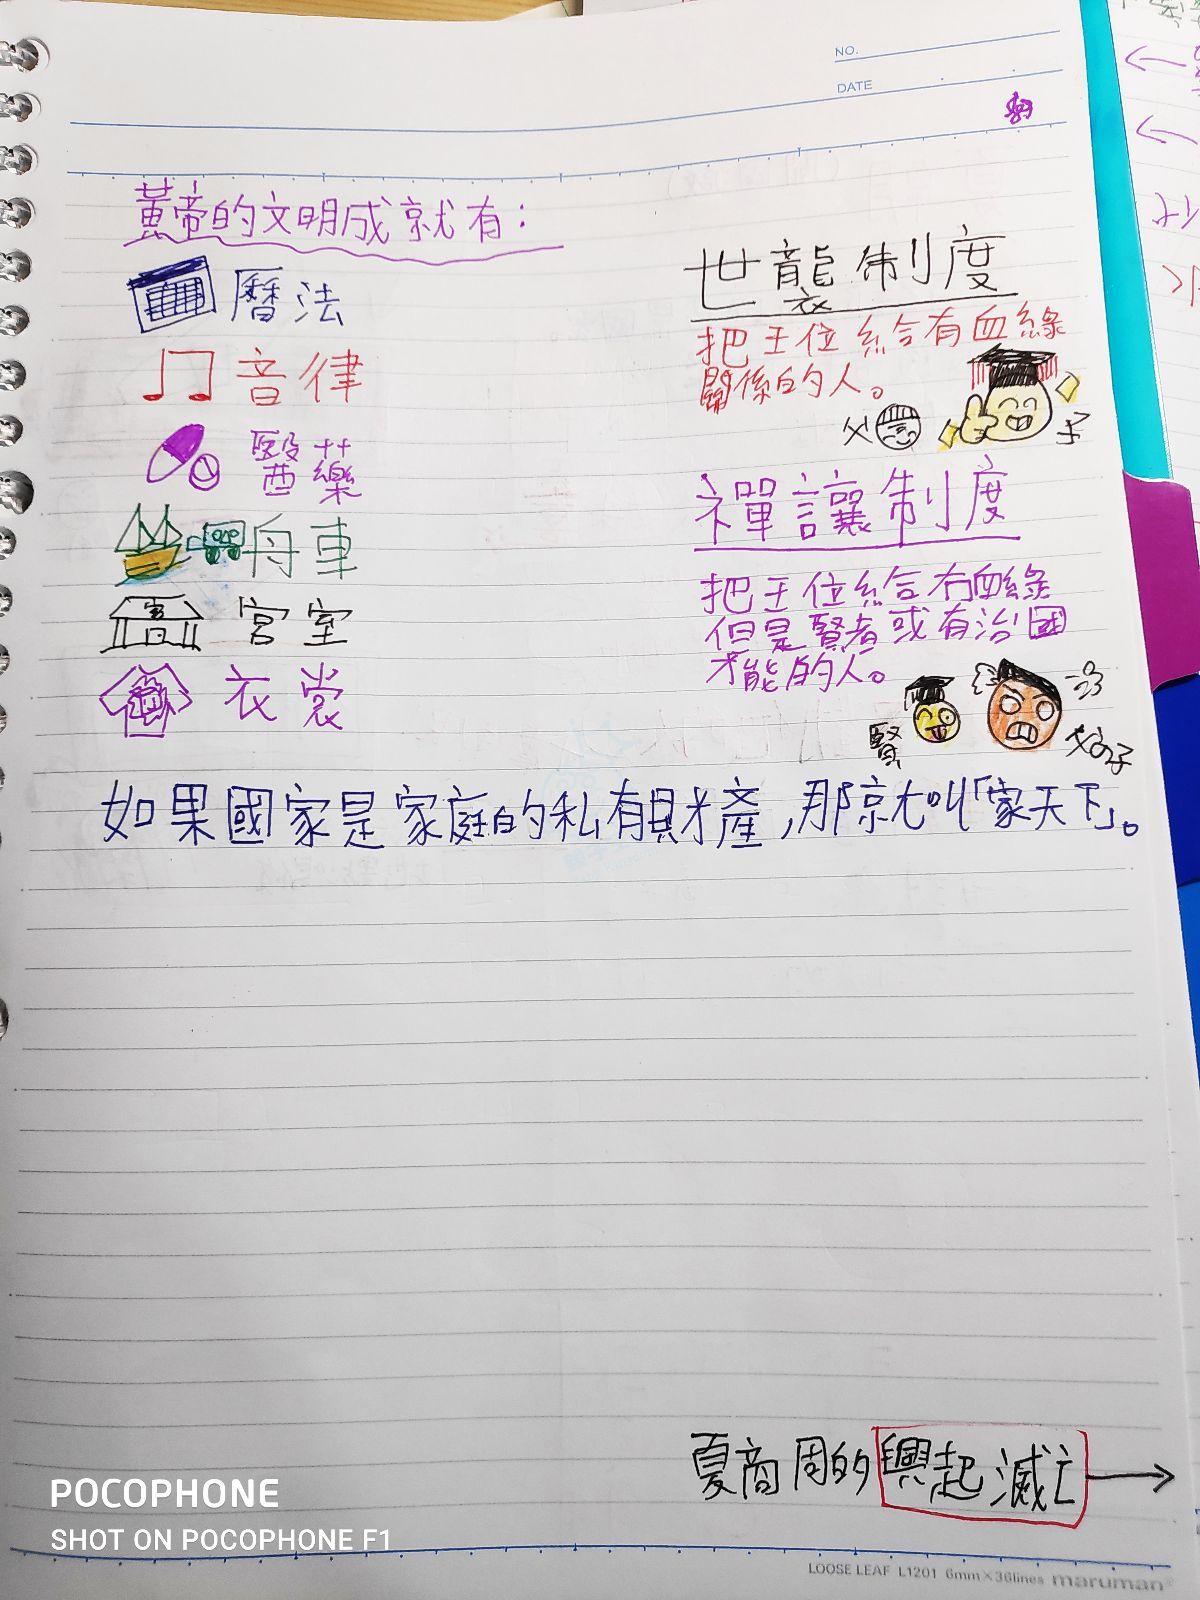 NO.
DATE
黃帝的文明成就有：
曆法
音律
醫藥
舟車
宮室
衣裳
世襲制度
把王位給有血緣
關係的人。
父
子
禪讓制度
把王位給冇血緣
但是賢者或有治國
才能的人。
賢
如果國家是家庭的私有財產，那就叫「家天下」。
夏商周的興起滅亡
POCOPHONE
SHOT ON POCOPHONE F1
LOOSE LEAF L1201 6mm×36lines maruman